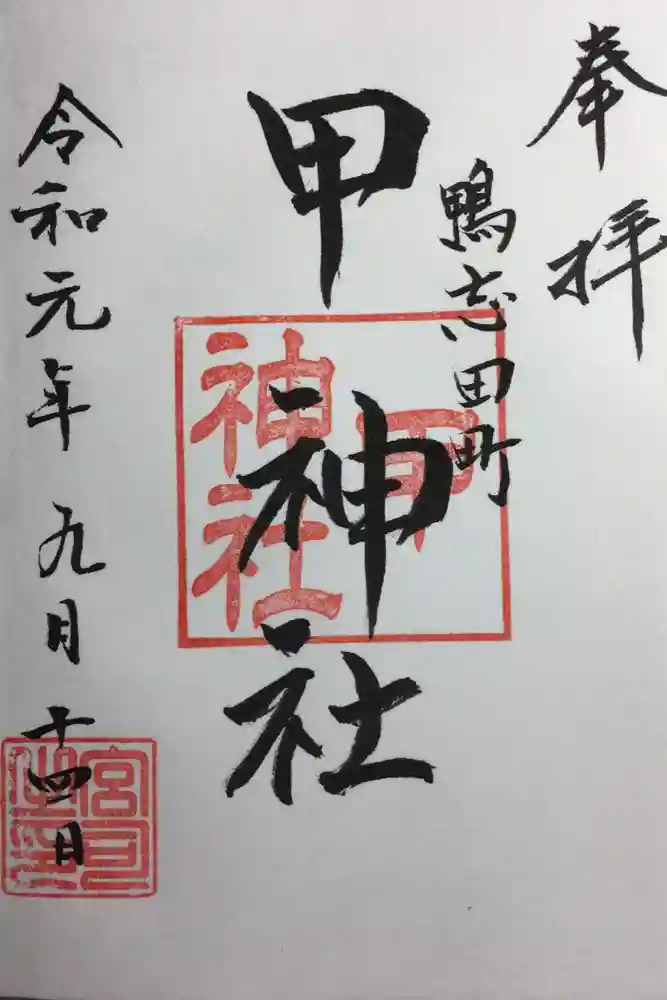 奉拝
鴨志田町
甲神社
甲
神社
令和元年九月十四日
宮司
之印